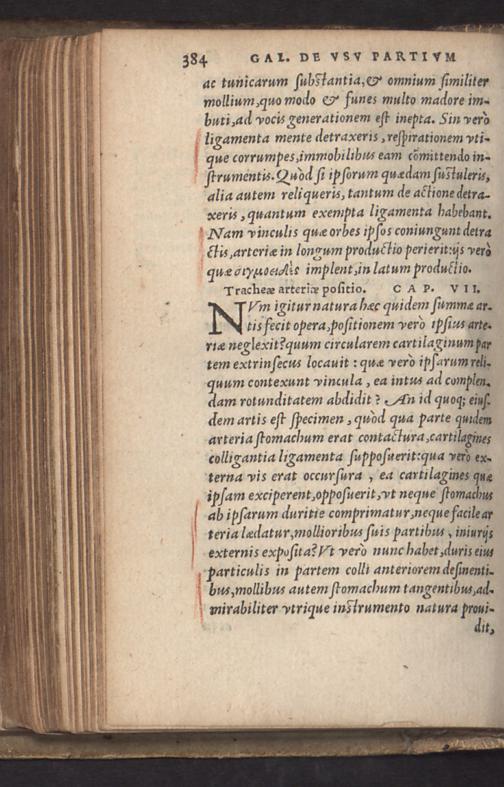 384 GAL. DE VSV PARTIVM
ac tunicarum substantia, & omnium similiter
mollium, quo modo & funes multo madore im-
buti, ad vocis generationem est inepta. Sin verò
ligamenta mente detraxeris, respirationem vti-
que corrumpes, immobilibus eam cōmittendo in-
strumentis. Quòd si ipsorum quædam sustuleris,
alia autem reliqueris, tantum de actione detra-
xeris, quantum exempta ligamenta habebant.
Nam vinculis quæ orbes ipsos coniungunt detra
ctis, arteriæ in longum productio perierit: ijs verò
quæ σιγμοειδὲς implent, in latum productio.
Tracheæ arteriæ positio. CAP. VII.
NVm igitur natura hæc quidem summæ ar-
tis fecit opera, positionem verò ipsius arte-
riæ neglexit? quum circularem cartilaginum par
tem extrinsecus locauit: quæ verò ipsarum reli-
quum contexunt vincula, ea intus ad complen-
dam rotunditatem abdidit? An id quoq; eius-
dem artis est specimen, quòd qua parte quidem
arteria stomachum erat contactura, cartilagines
colligantia ligamenta supposuerit: qua verò ex-
terna vis erat occursura, ea cartilagines quæ
ipsam exciperent, opposuerit, vt neque stomachus
ab ipsarum duritie comprimatur, neque facile ar
teria lædatur, mollioribus suis partibus, iniurijs
externis exposita? Vt verò nunc habet, duris eius
particulis in partem colli anteriorem desinenti-
bus, mollibus autem stomachum tangentibus, ad-
mirabiliter vtrique instrumento natura proui-
dit,